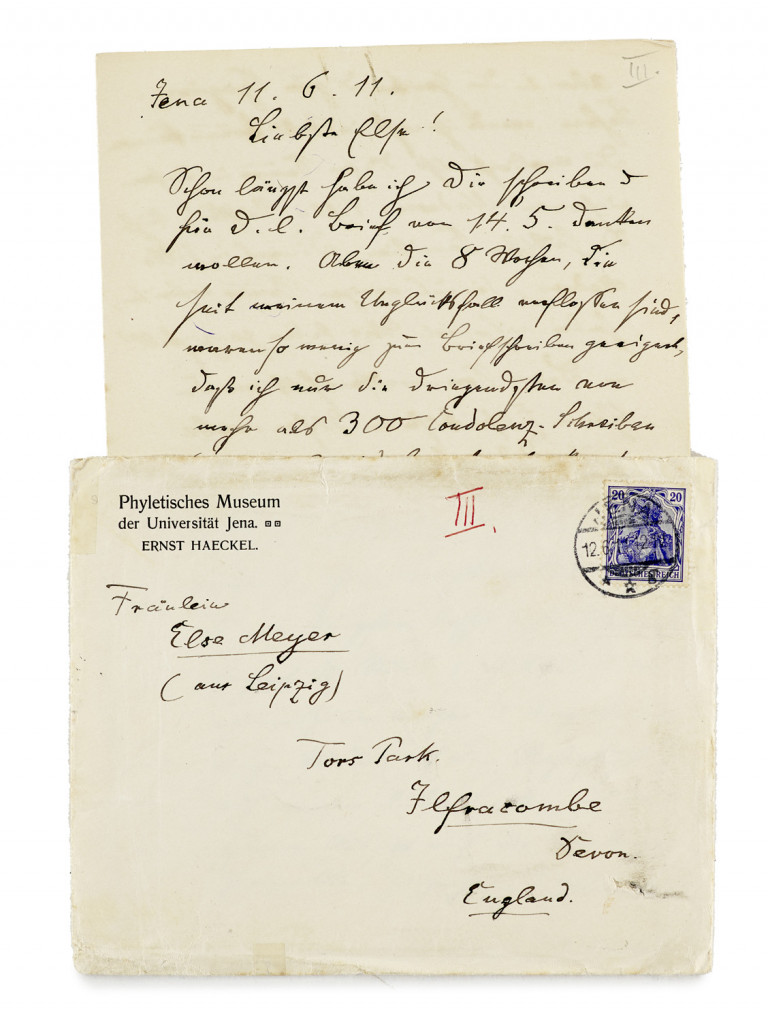 III.
Jena 11. 6. 11.
Liebste Else!
Schon längst habe ich Dir schreiben u
für D. l. Brief von 14. 5. danken
wollen. Aber die 8 Wochen, die
seit meinem Unglücksfall verflossen sind,
waren so wenig zum Briefschreiben geeignet,
daß ich nur die dringendsten von
mehr als 300 Condolenz-Schreiben
Phyletisches Museum
der Universität Jena.
ERNST HAECKEL.
III.
20 20
JENA
12.6.
DEUTSCHES REICH
Fräulein
Else Meyer
(aus Leipzig)
Tors Park.
Ilfracombe
Devon.
England.